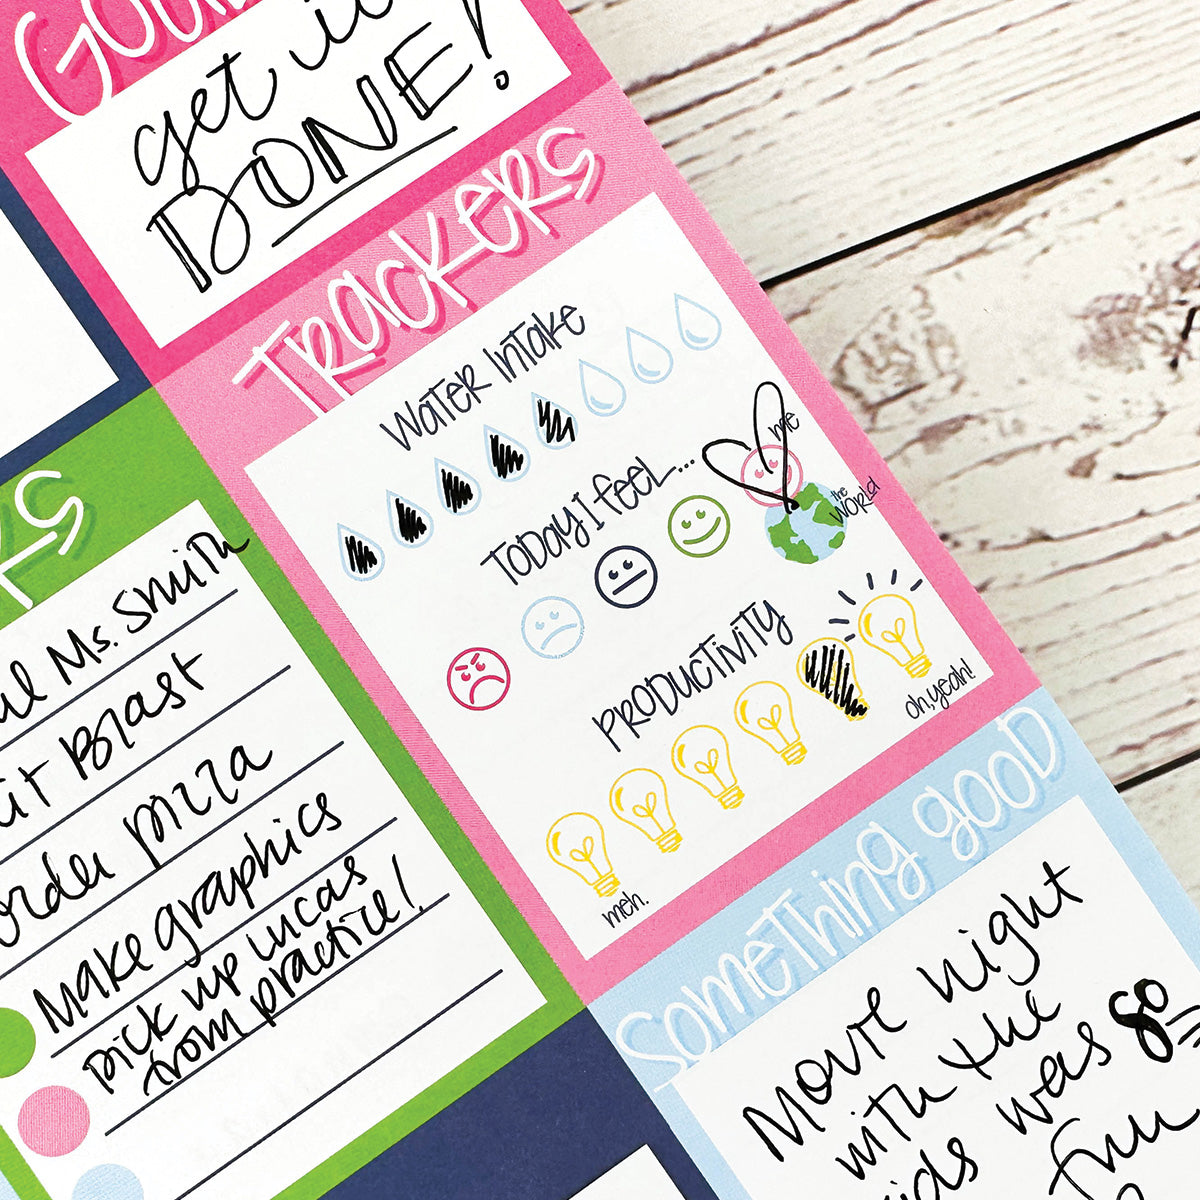 get it
DONE!
TRACKERS
WATER INTAKE
TODAY I FEEL...
me
the WORLD
PRODUCTIVITY
meh.
oh, yeah!
Ms. Smith
Blast
pizza
Make graphics
pick up Lucas
from practice!
SOMETHING GOOD
Movie night
with the
was so
fun